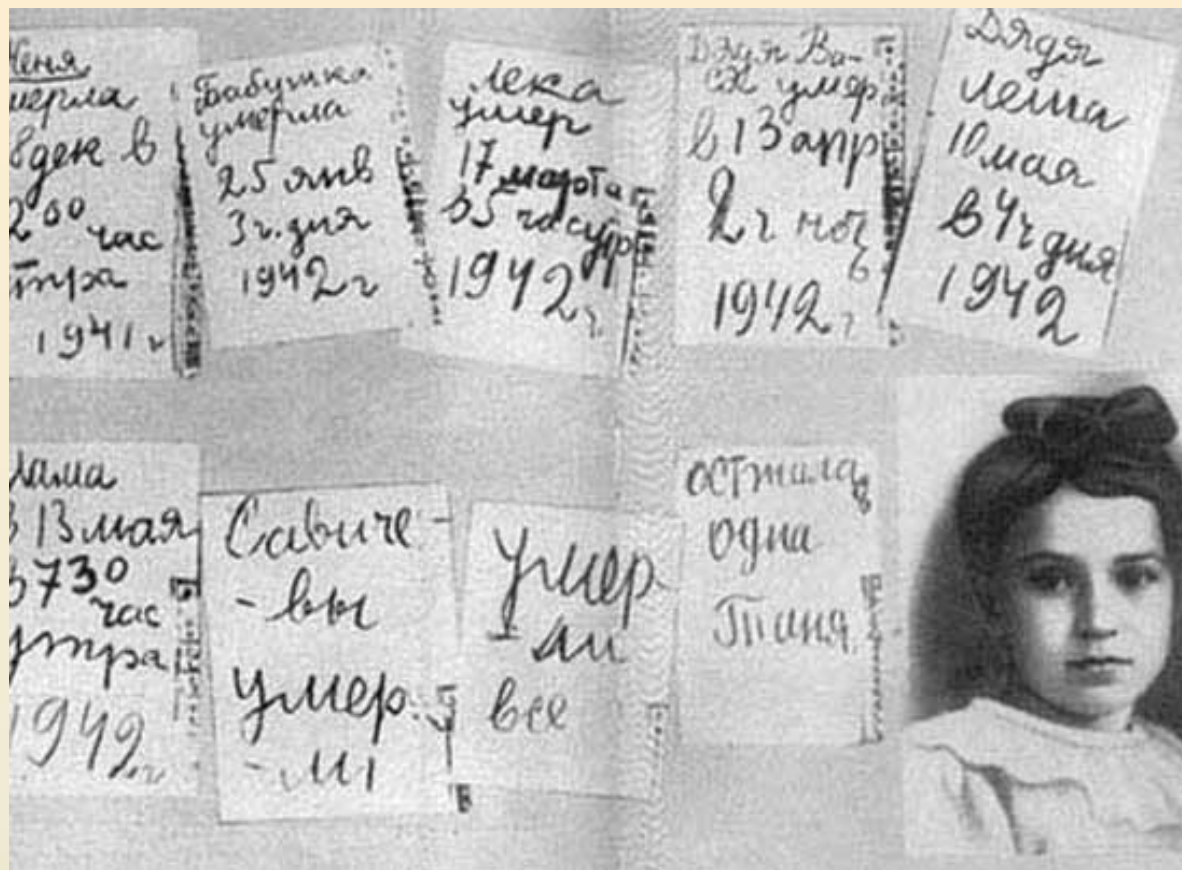 Женя
умерла
28 дек в
12 00 час
утра
1941 г
Бабушка
умерла
25 янв
3 ч. дня
1942 г
Лека
умер
17 марта
в 5 час утр
1942 г.
Дядя Ва-
ся умер
в 13 апр
2 ч ноч
ь
1942 г
Дядя
Леша
10 мая
в 4 ч дня
1942
Мама
в 13 мая
в 7 30
час
утра
1942 г
Савиче-
-вы
умер.
-ли
умер
-ли
все
осталась
одна
Таня